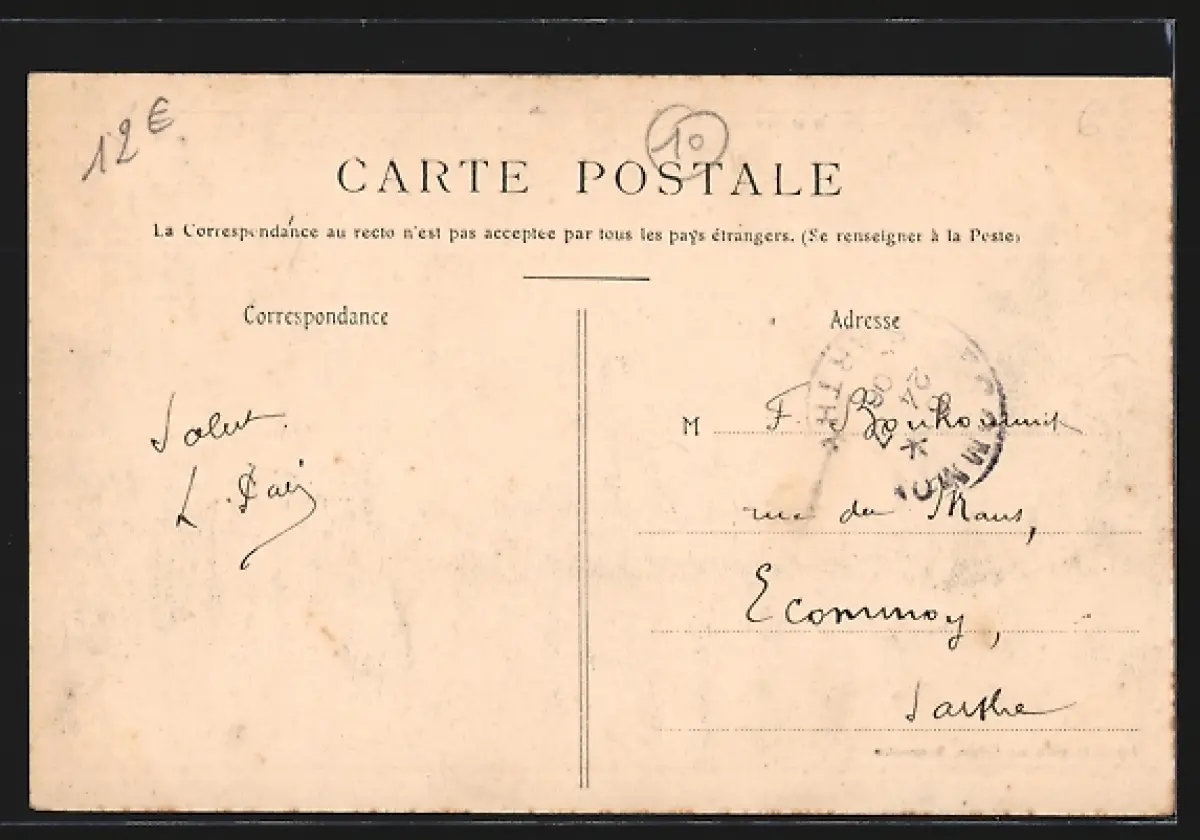 12 €
10
CARTE POSTALE
La Correspondance au recto n'est pas acceptee par tous les pays étrangers. (Se renseigner à la Poste)
Correspondance
Salut.
L.
Adresse
M F.
rue du Mans,
Ecommoy,
Sarthe
ECOMMOY
SARTHE
24